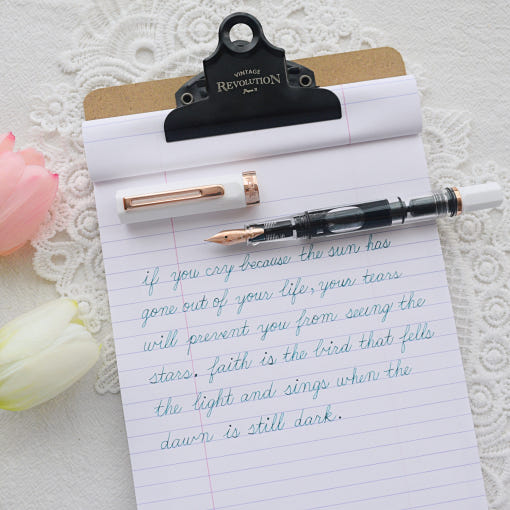 VINTAGE
REVOLUTION
if you cry because the sun has
gone out of your life, your tears
will prevent you from seeing the
stars. faith is the bird that fells
the light and sings when the
dawn is still dark.